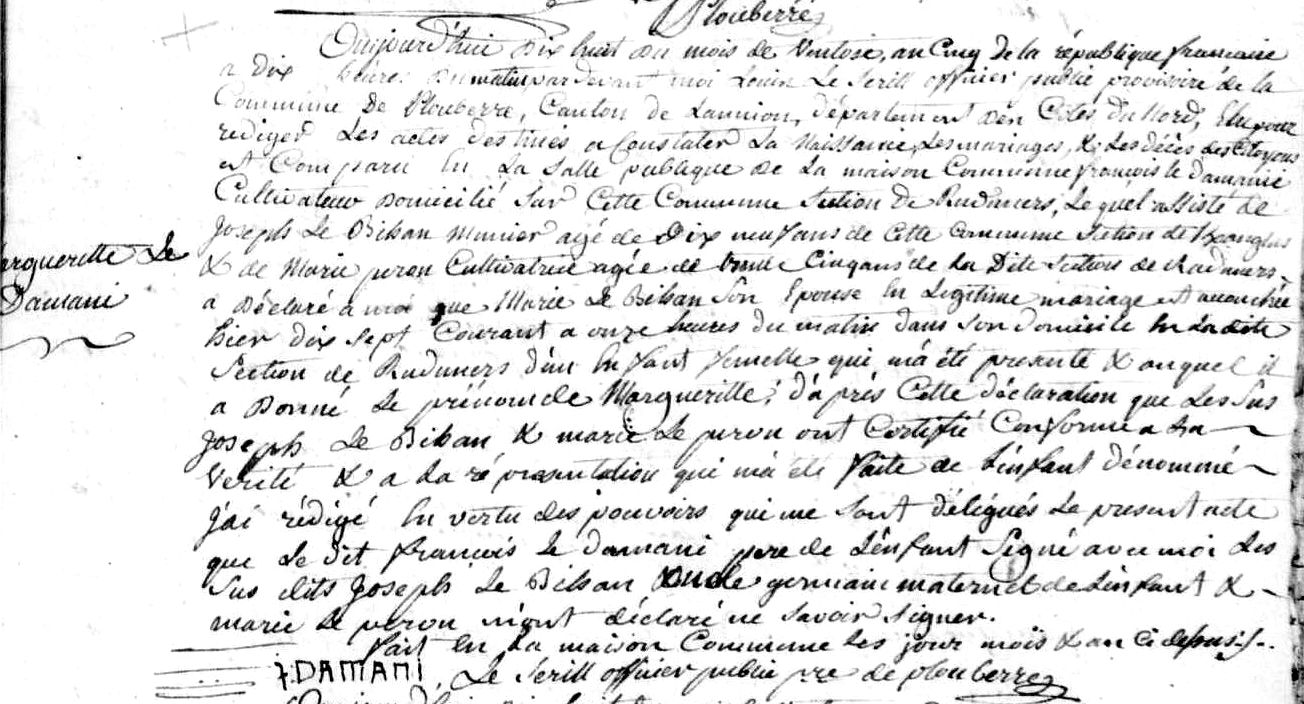 Plouberre
Aujourd'hui dix huit du mois de Ventose, an Cinq de la république francaise
a dix heures du matin par devant moi Louis Le Serill officier public provisoire de la
Commune De Plouberre, Canton de Lannion, département des Côtes du Nord, Elu pour
rediger Les actes destinés a Constater La Naissance, Les mariages, & Les décès des Citoyens
est Comparu En La Salle publique de La maison Commune francois le Damanie
Cultivateur Domicilié Sur Cette Commune Section de Ruduners, Le quel assisté de
Joseph Le Bihan munier agé de Dix neuf ans de Cette Commune Section de
& de Marie peron Cultivatrice agée de Cinq ans de La Dite Section de Ruduners
a Déclaré a moi que Marie Le Bihan Son Epouse En Legitime mariage est accouchée
hier dix sept Courant a onze heures du matin dans Son domicile En La dite
Section de Ruduners d'un Enfant femelle qui m'a été presenté & auquel il
a Donné Le prénom de Margueritte; d'après Cette déclaration que Les Sus
Joseph Le Bihan & marie Le peron ont Certifié Conforme a La
Verité & a La représentation qui m'a été faite de L'enfant dénommé
J'ai rédigé En vertu des pouvoirs qui me Sont délégués Le present acte
que Le dit francois Le Damani pere de L'enfant Signé avec moi Les
Sus dits Joseph Le Bihan oncle germain maternel de L'enfant &
marie Le peron m'ont déclaré ne Savoir Signer.
fait En La maison Commune Les jour mois & an Ci dessus
f. DAMANI. Le Serill officier public pre de plouberre
erguerette Le
Damani